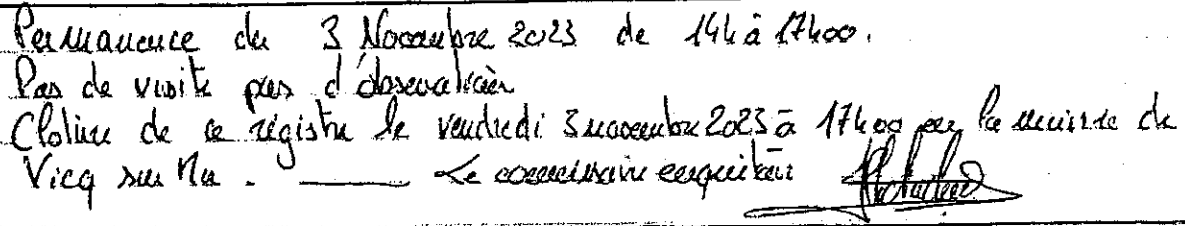 Permanence du 3 Novembre 2023 de 14h à 17h00.
Pas de visite pas d'observation
Clôture de ce registre le vendredi 3 novembre 2023 à 17h00 en la mairie de
Vicq sur . Le commissaire enquêteur